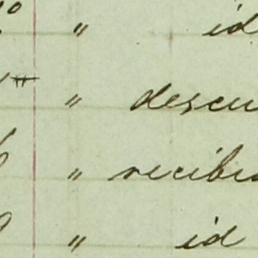 " id
" descu
" recibi
" id